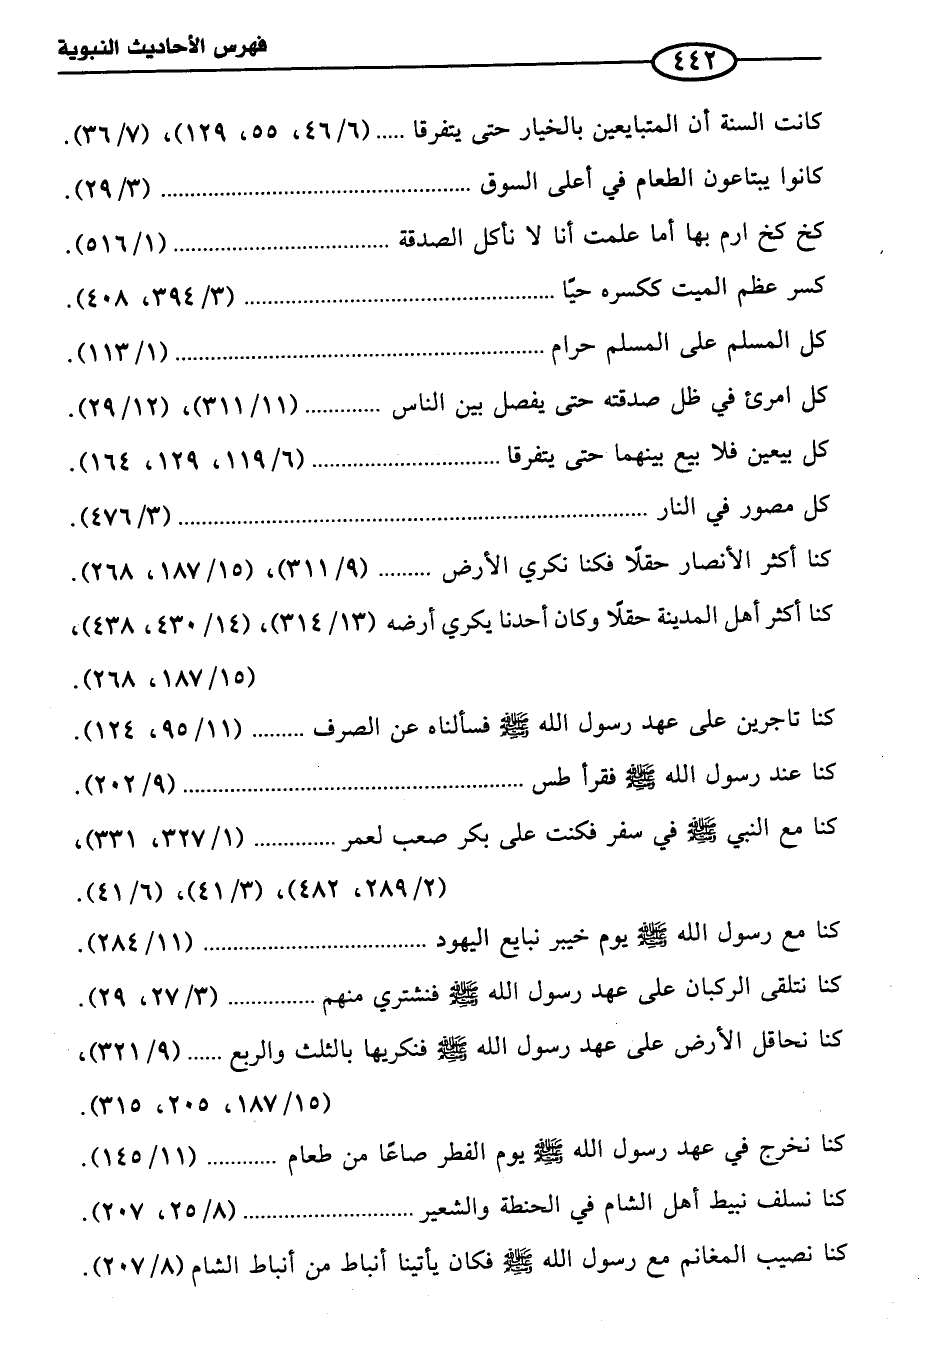 فهرس الأحاديث النبوية
٤٤٢
كانت السنة أن المتبايعين بالخيار حتى يتفرقا ..... (٤٦/٦، ٥٥، ١٢٩)، (٣٦/٧).
كانوا يبتاعون الطعام في أعلى السوق ..... (٢٩/٣).
كخ كخ ارم بها أما علمت أنا لا نأكل الصدقة ..... (٥١٦/١).
كسر عظم الميت ككسره حيًا ..... (٣٩٤/٣، ٤٠٨).
كل المسلم على المسلم حرام ..... (١١٣/١).
كل امرئ في ظل صدقته حتى يفصل بين الناس ..... (٣١١/١١)، (٢٩/١٢).
كل بيعين فلا بيع بينهما حتى يتفرقا ..... (١١٩/٦، ١٢٩، ١٦٤).
كل مصور في النار ..... (٤٧٦/٣).
كنا أكثر الأنصار حقلًا فكنا نكري الأرض ..... (٣١١/٩)، (١٨٧/١٥، ٢٦٨).
كنا أكثر أهل المدينة حقلًا وكان أحدنا يكري أرضه (٣١٤/١٣)، (٤٣٠/١٤، ٤٣٨)،
(١٨٧/١٥، ٢٦٨).
كنا تاجرين على عهد رسول الله ﷺ فسألناه عن الصرف ..... (٩٥/١١، ١٢٤).
كنا عند رسول الله ﷺ فقرأ طس ..... (٢٠٢/٩).
كنا مع النبي ﷺ في سفر فكنت على بكر صعب لعمر ..... (٣٢٧/١، ٣٣١)،
(٢٨٩/٢، ٤٨٢)، (٤١/٣)، (٤١/٦).
كنا مع رسول الله ﷺ يوم خيبر نبايع اليهود ..... (٢٨٤/١١).
كنا نتلقى الركبان على عهد رسول الله ﷺ فنشتري منهم ..... (٢٧/٣، ٢٩).
كنا نحاقل الأرض على عهد رسول الله ﷺ فنكريها بالثلث والربع ...... (٣٢١/٩)،
(١٨٧/١٥، ٢٠٥، ٣١٥).
كنا نخرج في عهد رسول الله ﷺ يوم الفطر صاعًا من طعام ..... (١٤٥/١١).
كنا نسلف نبيط أهل الشام في الحنطة والشعير ..... (٢٥/٨، ٢٠٧).
كنا نصيب المغانم مع رسول الله ﷺ فكان يأتينا أنباط من أنباط الشام (٢٠٧/٨).